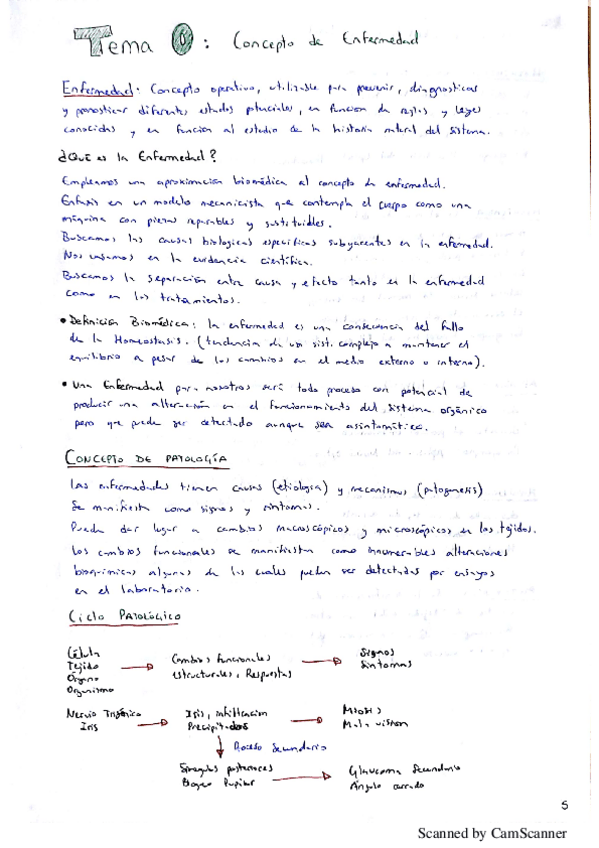 Tema 0: Concepto de Enfermedad
Enfermedad: Concepto operativo, utilizable para prevenir, diagnosticar
y pronosticar diferentes estados potenciales, en función de reglas y leyes
conocidas y en función al estudio de la historia natural del sistema.
¿Qué es la Enfermedad?
Empleamos una aproximación biomédica al concepto de enfermedad.
Énfasis en un modelo mecanicista que contempla el cuerpo como una
máquina con piezas reparables y sustituibles.
Buscamos las causas biológicas específicas subyacentes en la enfermedad.
Nos basamos en la evidencia científica.
Buscamos la separación entre causa y efecto tanto en la enfermedad
como en los tratamientos.
• Definición Biomédica: la enfermedad es una consecuencia del fallo
de la Homeostasis. (tendencia de un sist. complejo a mantener el
equilibrio a pesar de los cambios en el medio externo o interno).
• Una Enfermedad para nosotros será todo proceso con potencial de
producir una alteración en el funcionamiento del sistema orgánico
pero que puede ser detectado aunque sea asintomática.
CONCEPTO DE PATOLOGÍA
Las enfermedades tienen causas (etiología) y mecanismos (patogenesis)
Se manifiesta como signos y síntomas.
Pueden dar lugar a cambios macroscópicos y microscópicos en los tejidos.
Los cambios funcionales se manifiestan como innumerables alteraciones
bioquímicas algunas de las cuales pueden ser detectadas por ensayos
en el laboratorio.
Ciclo PATOLÓGICO
Célula
Tejido
Órgano
Organismo
Cambios funcionales
estructurales, Respuestas
Signos
Síntomas
Nervio Trigémico
Iris
Iris, infiltración
Precipitados
Miosis
Mala visión
Acceso Secundario
posteriores
Bloqueo Pupilar
Glaucoma Secundario
Ángulo cerrado
5
Scanned by CamScanner